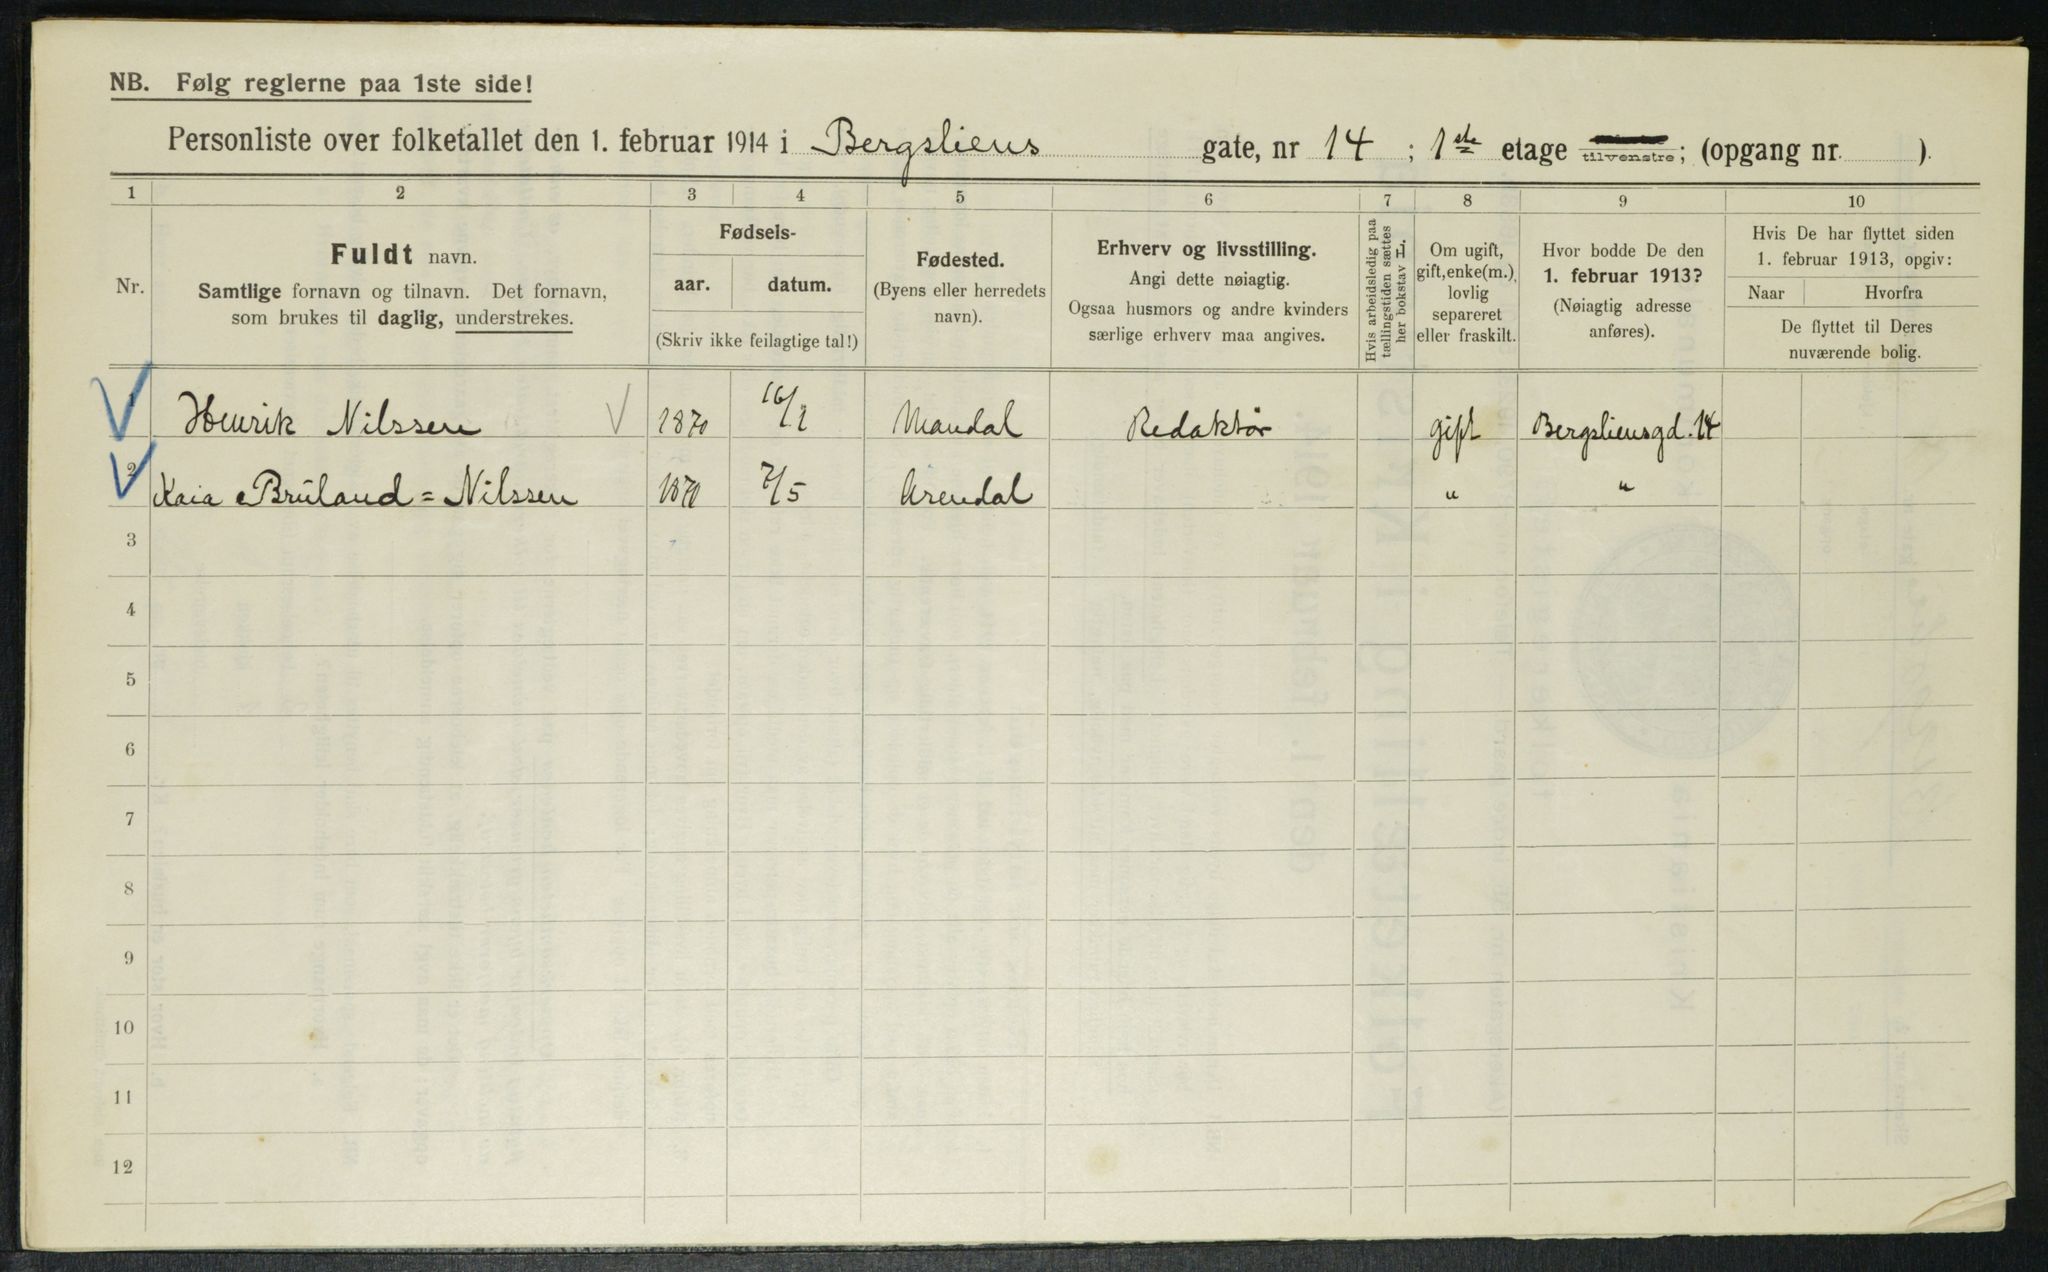 NB. Følg reglerne paa 1ste side!
Personliste over folketallet den 1. februar 1914 i Bergsliens gate, nr 14 ; 1ste etage tilvenstre; (opgang nr. ).
1 2 3 4 5 6 7 8 9 10
Nr.
Fuldt navn.
Samtlige fornavn og tilnavn. Det fornavn,
som brukes til daglig, understrekes.
Fødsels-
aar. datum.
(Skriv ikke feilagtige tal!)
Fødested.
(Byens eller herredets
navn).
Erhverv og livsstilling.
Angi dette nøiagtig.
Ogsaa husmors og andre kvinders
særlige erhverv maa angives.
Hvis arbeidsledig paa
tællingstiden sættes
her bokstav L.
Om ugift,
gift, enke(m.),
lovlig
separeret
eller fraskilt.
Hvor bodde De den
1. februar 1913?
(Nøiagtig adresse
anføres).
Hvis De har flyttet siden
1. februar 1913, opgiv:
Naar Hvorfra
De flyttet til Deres
nuværende bolig.
1 Henrik Nilssen 1870 16/1 Mandal Redaktør gift Bergsliensgd. 14
2 Kaia Bruland = Nilssen 1870 /5 Arendal " "
3
4
5
6
7
8
9
10
11
12